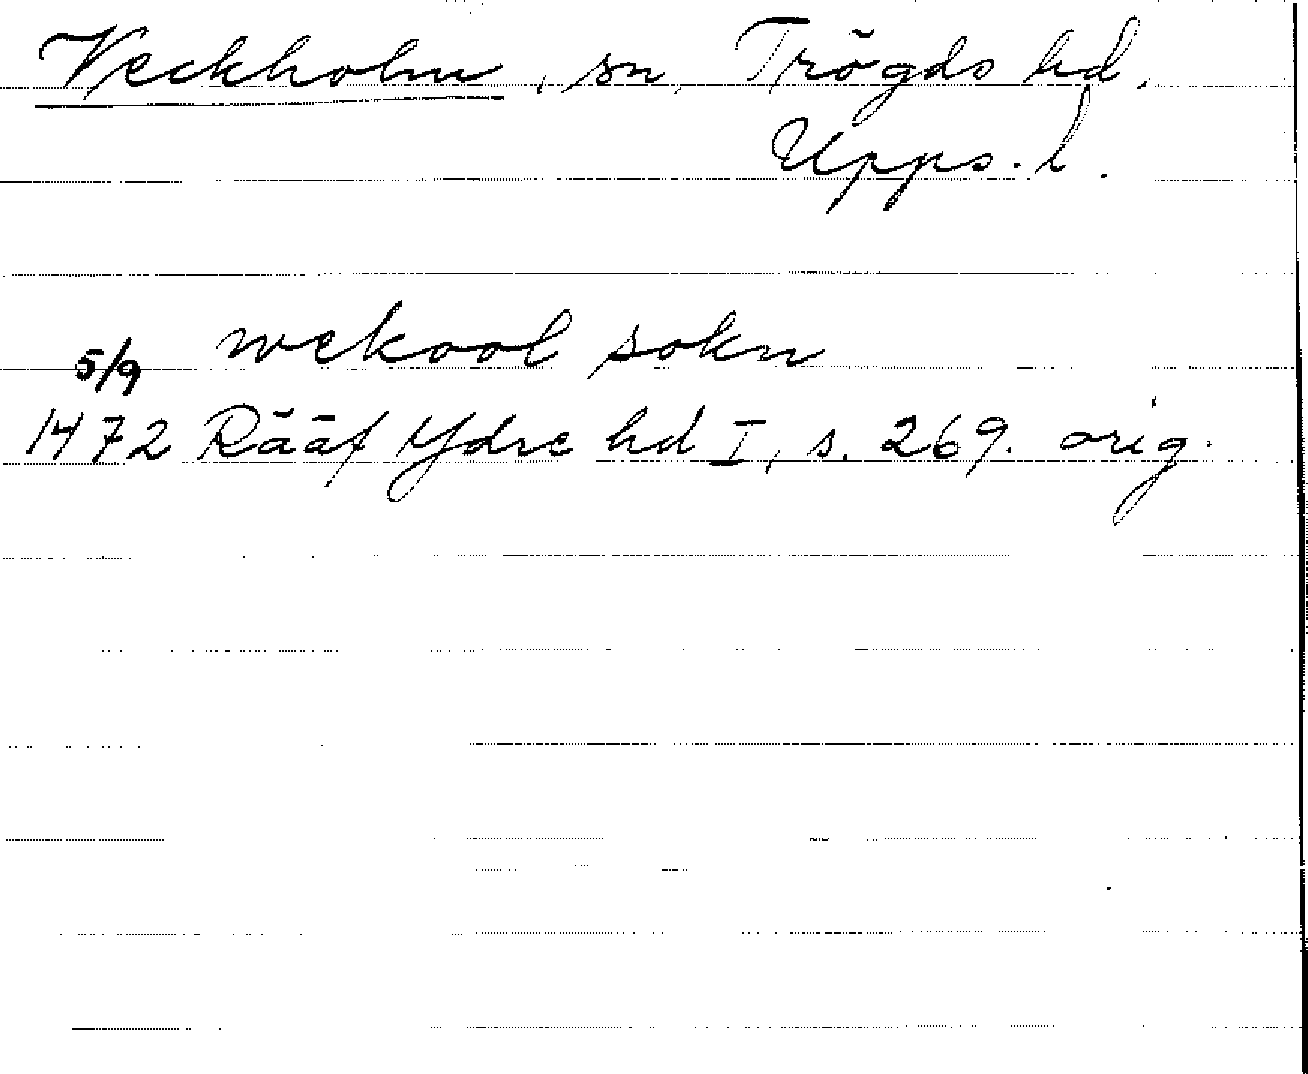 Veckholm, sn, Trögds hd.
Upps. l.
wekool sokn
5/9
1472 Rääf Ydre hd I, s. 269. orig.